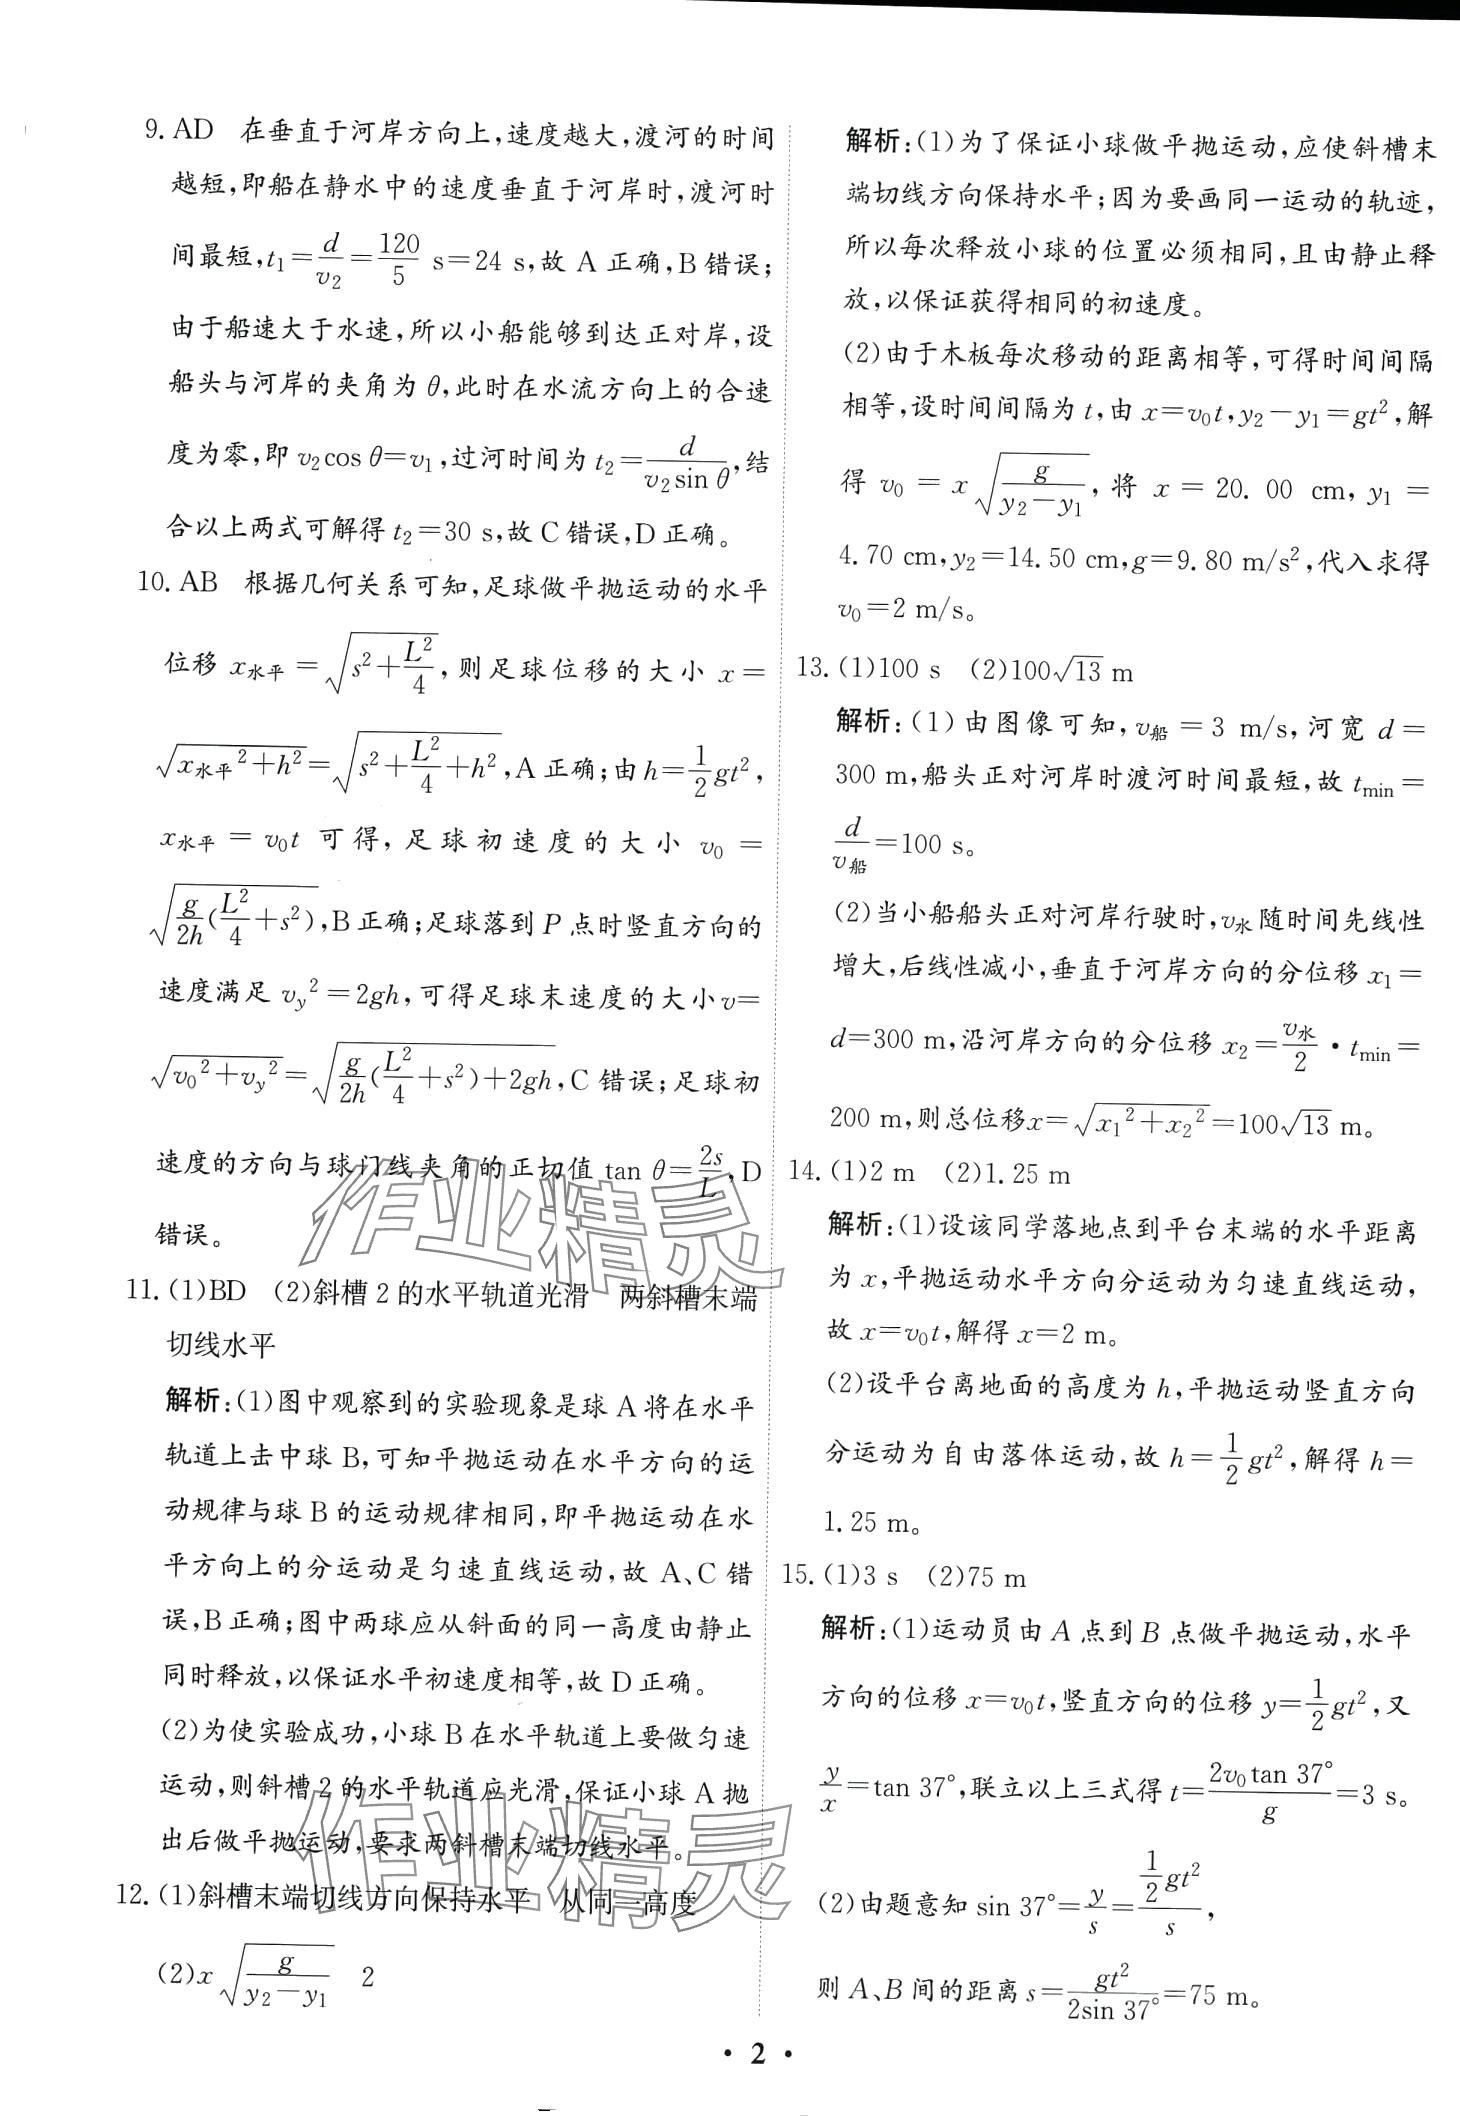 9. AD　在垂直于河岸方向上,速度越大,渡河的时间
越短,即船在静水中的速度垂直于河岸时,渡河时
间最短,t₁=d/v₂=120/5 s=24 s,故 A 正确,B 错误;
由于船速大于水速,所以小船能够到达正对岸,设
船头与河岸的夹角为 θ,此时在水流方向上的合速
度为零,即 v₂cos θ=v₁,过河时间为 t₂=d/(v₂sin θ),结
合以上两式可解得 t₂=30 s,故 C 错误,D 正确。
10. AB　根据几何关系可知,足球做平抛运动的水平
位移 x水平=√(s²+L²/4),则足球位移的大小 x=
√(x水平²+h²)=√(s²+L²/4+h²),A 正确;由 h=1/2gt²,
x水平=v₀t 可得,足球初速度的大小 v₀=
√(g/2h(L²/4+s²)),B 正确;足球落到 P 点时竖直方向的
速度满足 v_y²=2gh,可得足球末速度的大小 v=
√(v₀²+v_y²)=√(g/2h(L²/4+s²)+2gh),C 错误;足球初
速度的方向与球门线夹角的正切值 tan θ=2s/L,D
错误。
11. (1)BD　(2)斜槽 2 的水平轨道光滑　两斜槽末端
切线水平
解析:(1)图中观察到的实验现象是球 A 将在水平
轨道上击中球 B,可知平抛运动在水平方向的运
动规律与球 B 的运动规律相同,即平抛运动在水
平方向上的分运动是匀速直线运动,故 A、C 错
误,B 正确;图中两球应从斜面的同一高度由静止
同时释放,以保证水平初速度相等,故 D 正确。
(2)为使实验成功,小球 B 在水平轨道上要做匀速
运动,则斜槽 2 的水平轨道应光滑,保证小球 A 抛
出后做平抛运动,要求两斜槽末端切线水平。
12. (1)斜槽末端切线方向保持水平　从同一高度
(2)x√(g/(y₂-y₁))　2
解析:(1)为了保证小球做平抛运动,应使斜槽末
端切线方向保持水平;因为要画同一运动的轨迹,
所以每次释放小球的位置必须相同,且由静止释
放,以保证获得相同的初速度。
(2)由于木板每次移动的距离相等,可得时间间隔
相等,设时间间隔为 t,由 x=v₀t,y₂-y₁=gt²,解
得 v₀=x√(g/(y₂-y₁)),将 x=20.00 cm,y₁=
4.70 cm,y₂=14.50 cm,g=9.80 m/s²,代入求得
v₀=2 m/s。
13. (1)100 s　(2)100√13 m
解析:(1)由图像可知,v船=3 m/s,河宽 d=
300 m,船头正对河岸时渡河时间最短,故 t_min=
d/v船=100 s。
(2)当小船船头正对河岸行驶时,v水随时间先线性
增大,后线性减小,垂直于河岸方向的分位移 x₁=
d=300 m,沿河岸方向的分位移 x₂=v水/2·t_min=
200 m,则总位移x=√(x₁²+x₂²)=100√13 m。
14. (1)2 m　(2)1.25 m
解析:(1)设该同学落地点到平台末端的水平距离
为 x,平抛运动水平方向分运动为匀速直线运动,
故 x=v₀t,解得 x=2 m。
(2)设平台离地面的高度为 h,平抛运动竖直方向
分运动为自由落体运动,故 h=1/2gt²,解得 h=
1.25 m。
15. (1)3 s　(2)75 m
解析:(1)运动员由 A 点到 B 点做平抛运动,水平
方向的位移 x=v₀t,竖直方向的位移 y=1/2gt²,又
y/x=tan 37°,联立以上三式得 t=2v₀tan 37°/g=3 s。
(2)由题意知 sin 37°=y/s=(1/2gt²)/s,
则 A、B 间的距离 s=gt²/(2sin 37°)=75 m。
作业精灵
作业精灵
· 2 ·